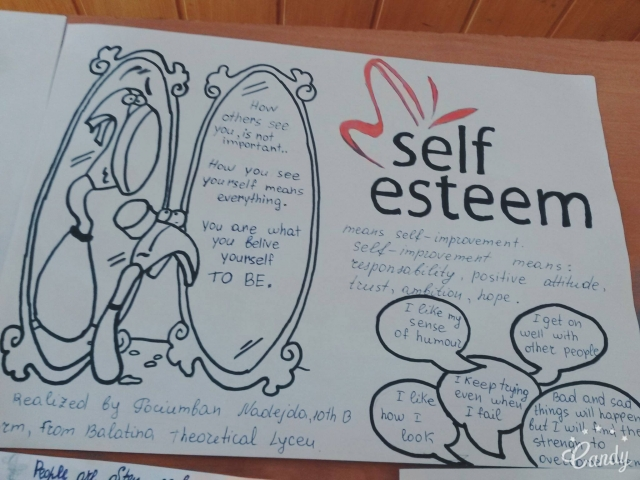 How
others see
you, is not
important..
How you see
yourself means
everything.
you are what
you belive
yourself
TO BE.
self
esteem
means self-improvement.
Self-improvement means:
responsability, positive attitude,
trust, ambition, hope.
I like my
sense
of humour
I get on
well with
other people
I keep trying
even when
I fail
I like
how I
look
Bad and sad
things will happen
but I will find the
strength to
Realized by Nadejda, 10th B
rm, from Balatina Theoretical Lyceu
People are often
Candy